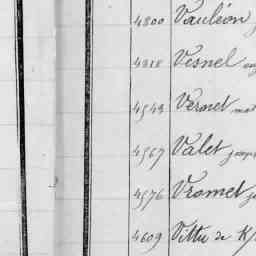 4300 Vauléon
4318 Vesnel
4543 Vernet
4567 Valet
4576 Vromet
4609 Vittu de K/